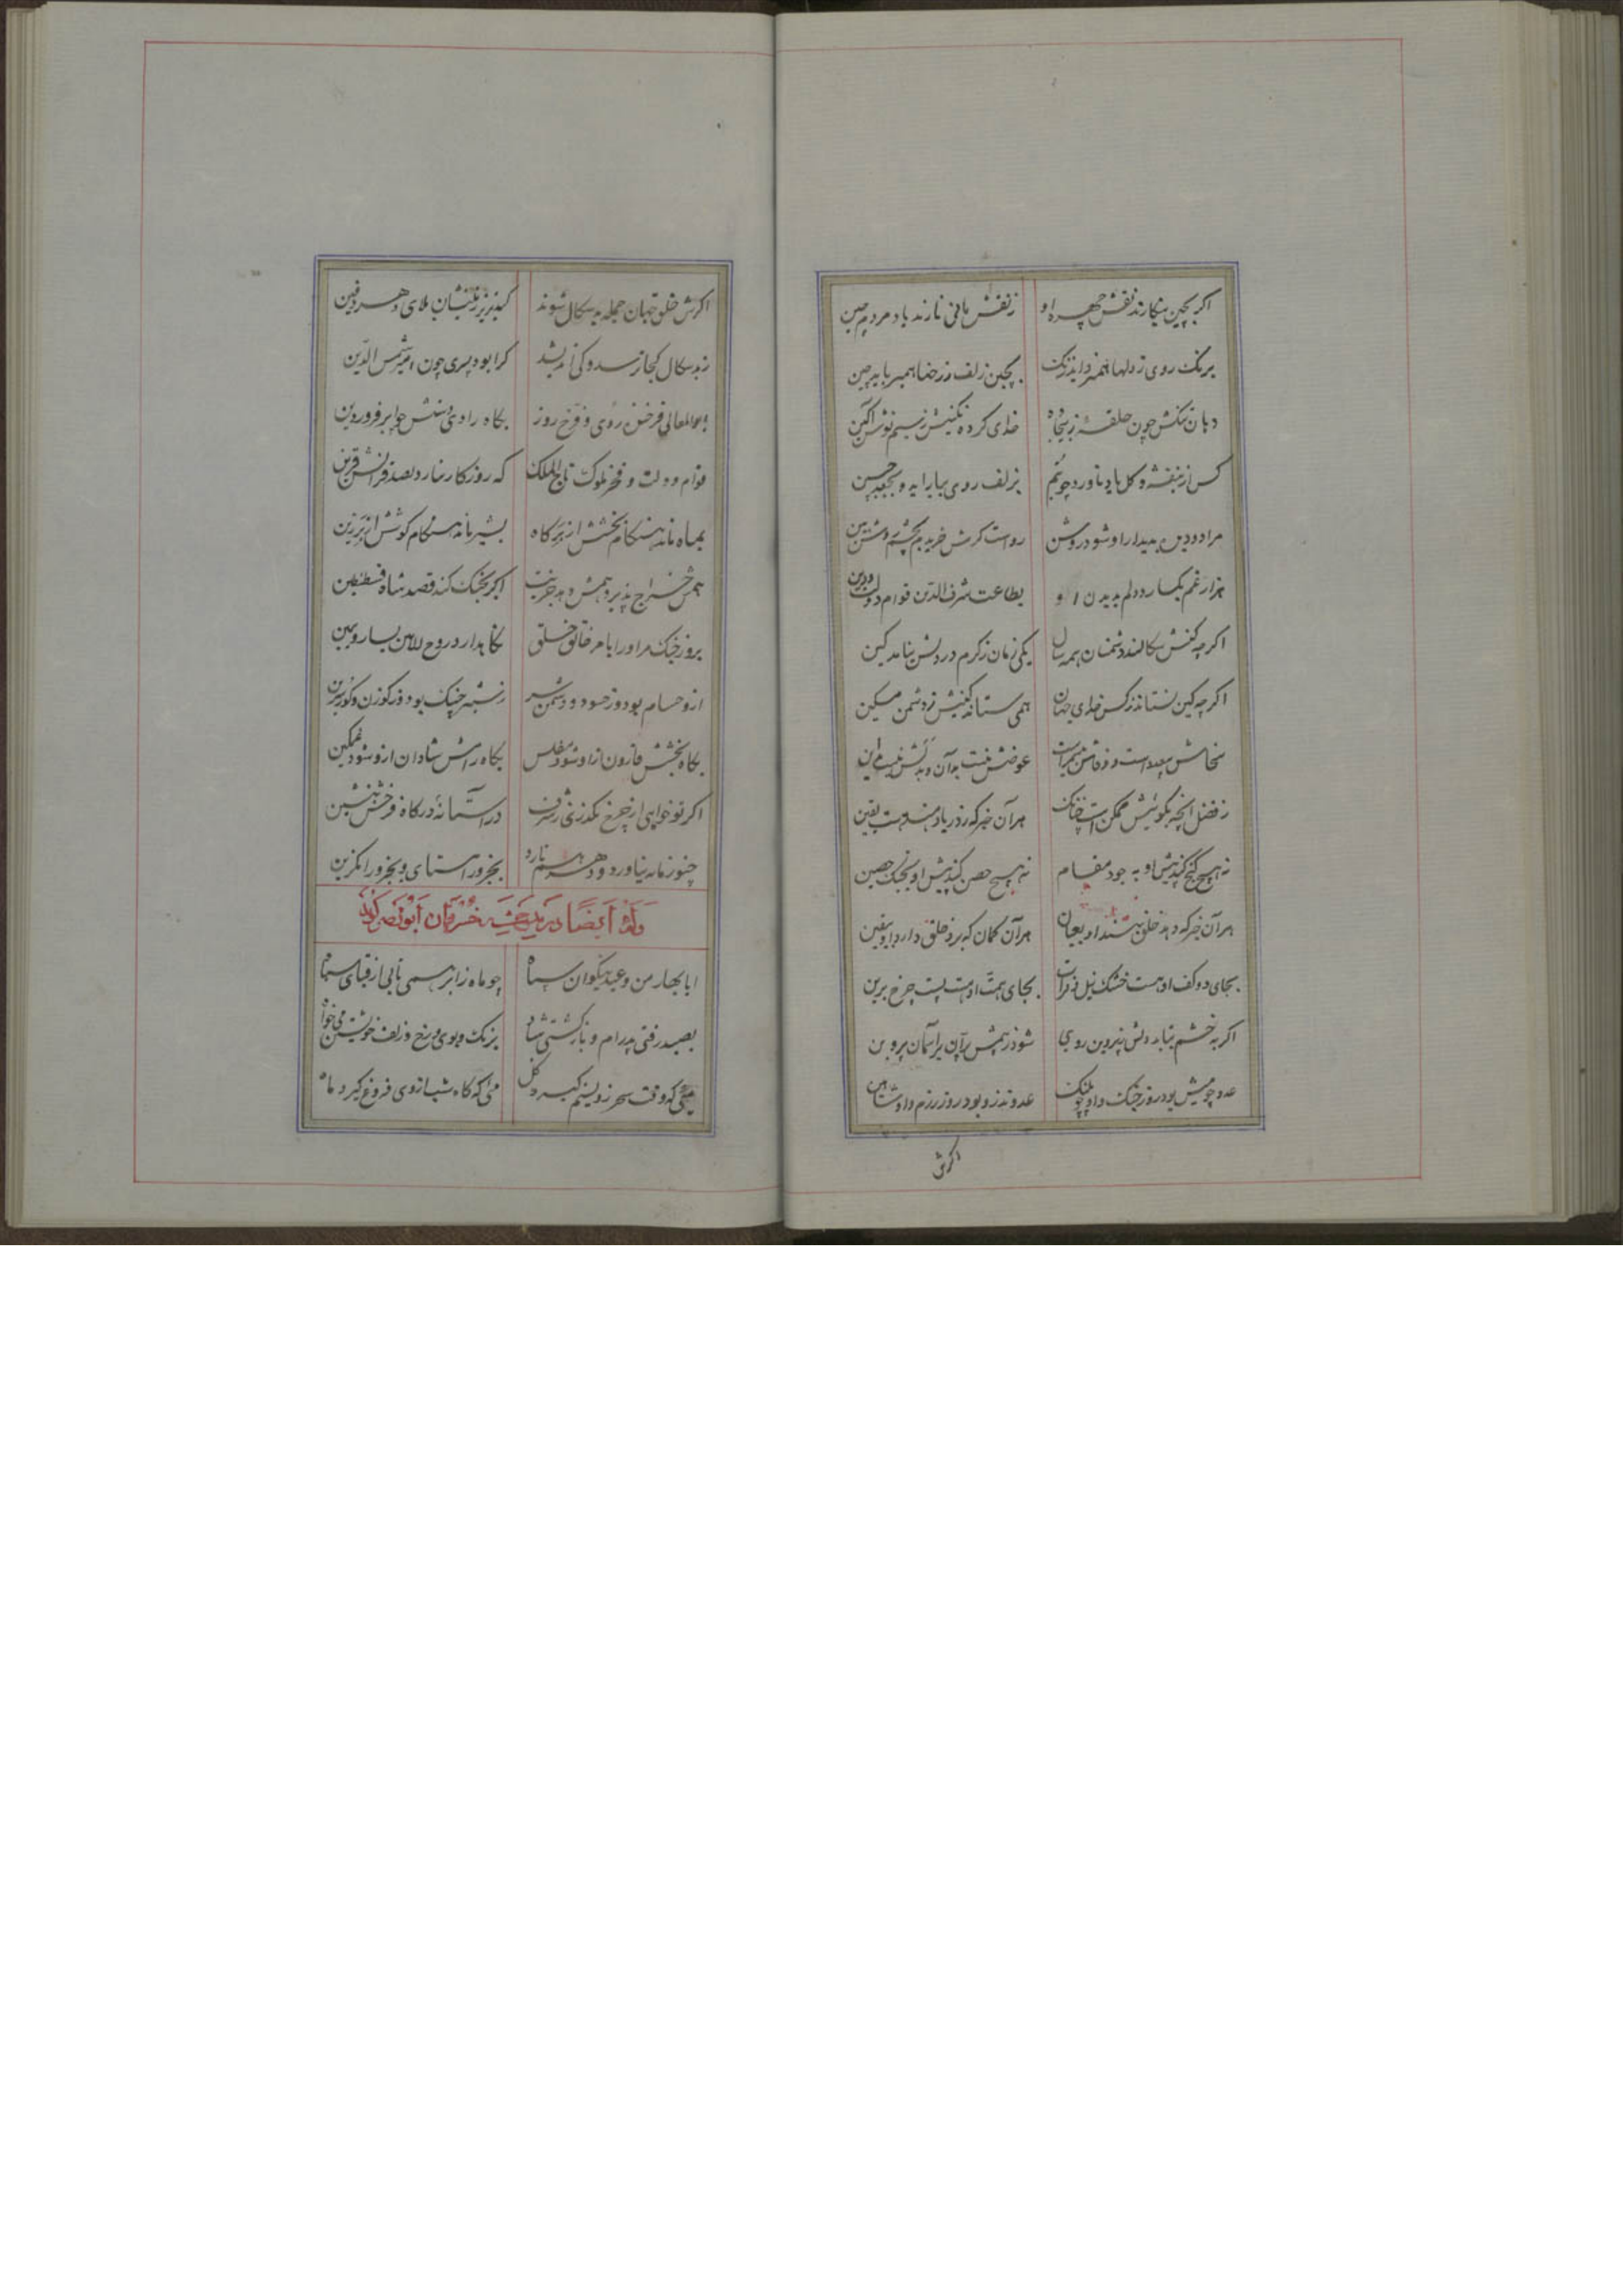 اگر بچین بنگارند نقش چهره او ز نقش مانی نارند یاد مردم چین
برنگ روی ز دلها همی زداید زنگ بچین زلف ز رخها همی رباید چین
دهان تنگش چون حلقه خدای کرده نگینش ز سیم نوش آگین
کس از بنفشه و گل یاد ناورد چو بتم بزلف روی بیاراید و بجعد جبین
مرا دو دیده بدیدار او شود روشن رواست گرش خریدم بچشم روشن بین
هزار غم بکسارد دلم بدیدن او بطاعت شرف الدین قوام دولت و دین
اگر چه کینش سکالند دشمنان همه سال یکی زمان ز کرم در دلش نیامد کین
اگر چه کین نستاند ز کس خدای جهان همی ستاند کینش ز دشمن مسکین
سخاش بعید است و وفاش عوضش نیست بدآن و بدلش نیست باین
ز فضل آنچه بگوئیش ممکن است چنانک هر آن خبر که ز دریا دهند هست یقین
نه هیچ گنج کند پیش او به جود مقام نه هیچ حصن کند پیش او بجنگ حصین
هر آن خبر که دهد خلق بیند او بعیان هر آن گمان که برد خلق دارد او بیقین
بجای دو کف او هست خشک نیل و فرات بجای همت او هست پست چرخ برین
اگر به خشم بتابد دلش ز پروین روی شود ز همش پران بر آسمان پروین
عدو چو میش بود روز جنگ و او چو پلنگ عدو تذرو بود روز رزم و او شاهین
گرش
اگرش خلق جهان جمله بد سکال شوند بلای دهر دفین
ز بد سکال کجا ترسد و کی اندیشد کرا بود پسری چون امیر شمس الدین
ابوالمعالی فرخنده روی و فرخ روز بگاه رادی دستش چو ابر فروردین
قوام دولت و فخر ملوک تاج الملک که روزگار نیارد بصد قرانش قرین
بماه ماند هنگام بخشش از بر گاه بشیر ماند هنگام کوشش از بر زین
همش خراج پذیرد همش دهد جزیت اگر بجنگ کند قصد شاه قسطنطین
بروز جنگ مر او را بامر خالق خلق نگاه دارد روح الامین یسار و یمین
ازو حسام بود وز حسود و دشمن سر ز شیر چنگ بود وز گوزن و گور سرین
بگاه بخشش قارون ازو شود مفلس بگاه رامش شادان ازو شود غمگین
اگر تو خواهی از چرخ بگذری ز شرف در آستانه درگاه فرخش بنشین
چنو زمانه نیاورد و دهر هم نارد بخیر ور استای و بخیر ورا بگزین
وله أیضا در مدحت خسروان ابونصر گوید
ایا بهار من و عید نیکوان سپاه چو ماه ز ابر همی تابی از قبای سیاه
بصید رفتی پدرام و باز گشتی شاد برنگ و بوی و رخ و زلف خویشتن می خواه
میی که وقت سحر زو نسیم گیرد گل میی که گاه شب از وی فروغ گیرد ماه